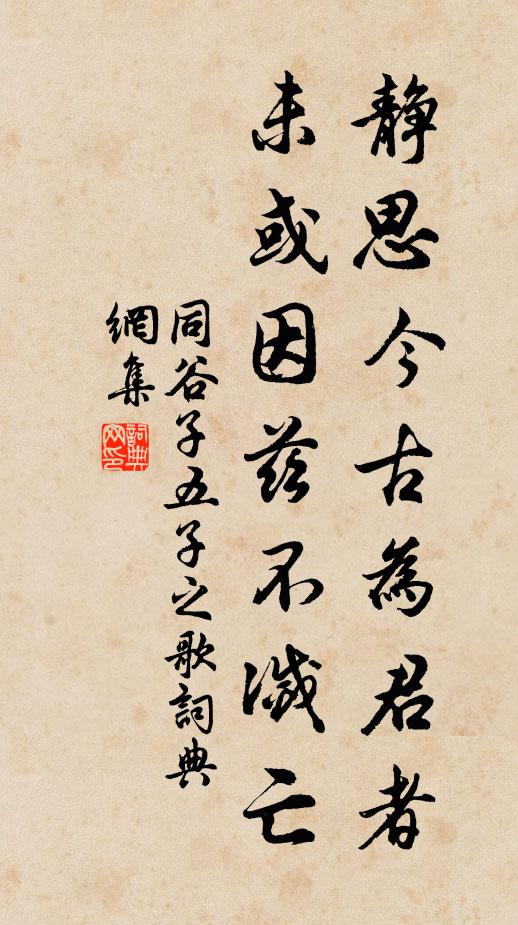 静思今古為君者
未或因茲不滅亡
同谷子五子之歌詞典
網集
詞典
网印